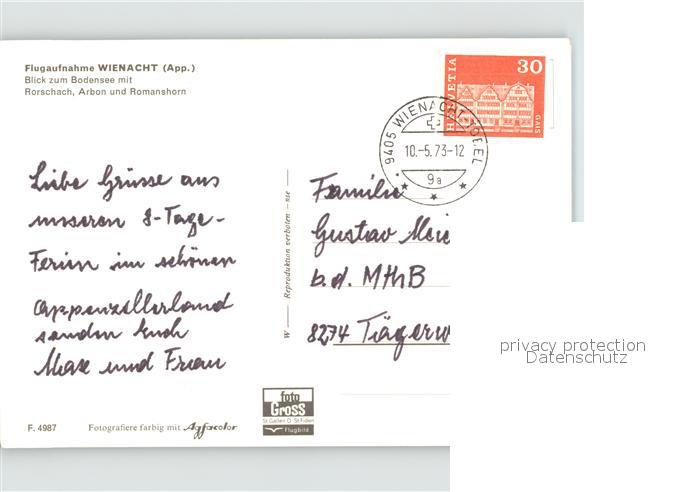 Flugaufnahme WIENACHT (App.)
Blick zum Bodensee mit
Rorschach, Arbon und Romanshorn
HELVETIA
30
GAIS
9405 WIENACHT-TOBEL
10.-5.73-12
9a
Liebe Grüsse aus
unseren 8-Tage-
Ferien im schönen
Appenzellerland
senden Euch
Max und Frau
W — Reproduktion verboten
Familie
Gustav
b.d. MThB
8274 Tägerw
privacy protection
Datenschutz
foto
Gross
St.Gallen O St.Fiden
Flugbild
F. 4987
Fotografiere farbig mit Agfacolor